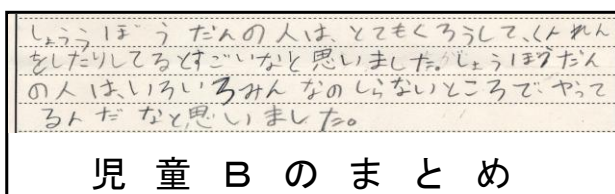 しょうぼう だんの人は、とてもくろうして、くんれん
をしたりしてるとすごいなと思いました。しょうぼうだん
の人は、いろいろみんなのしらないところで、やって
るんだなと思いました。
児童Bのまとめ